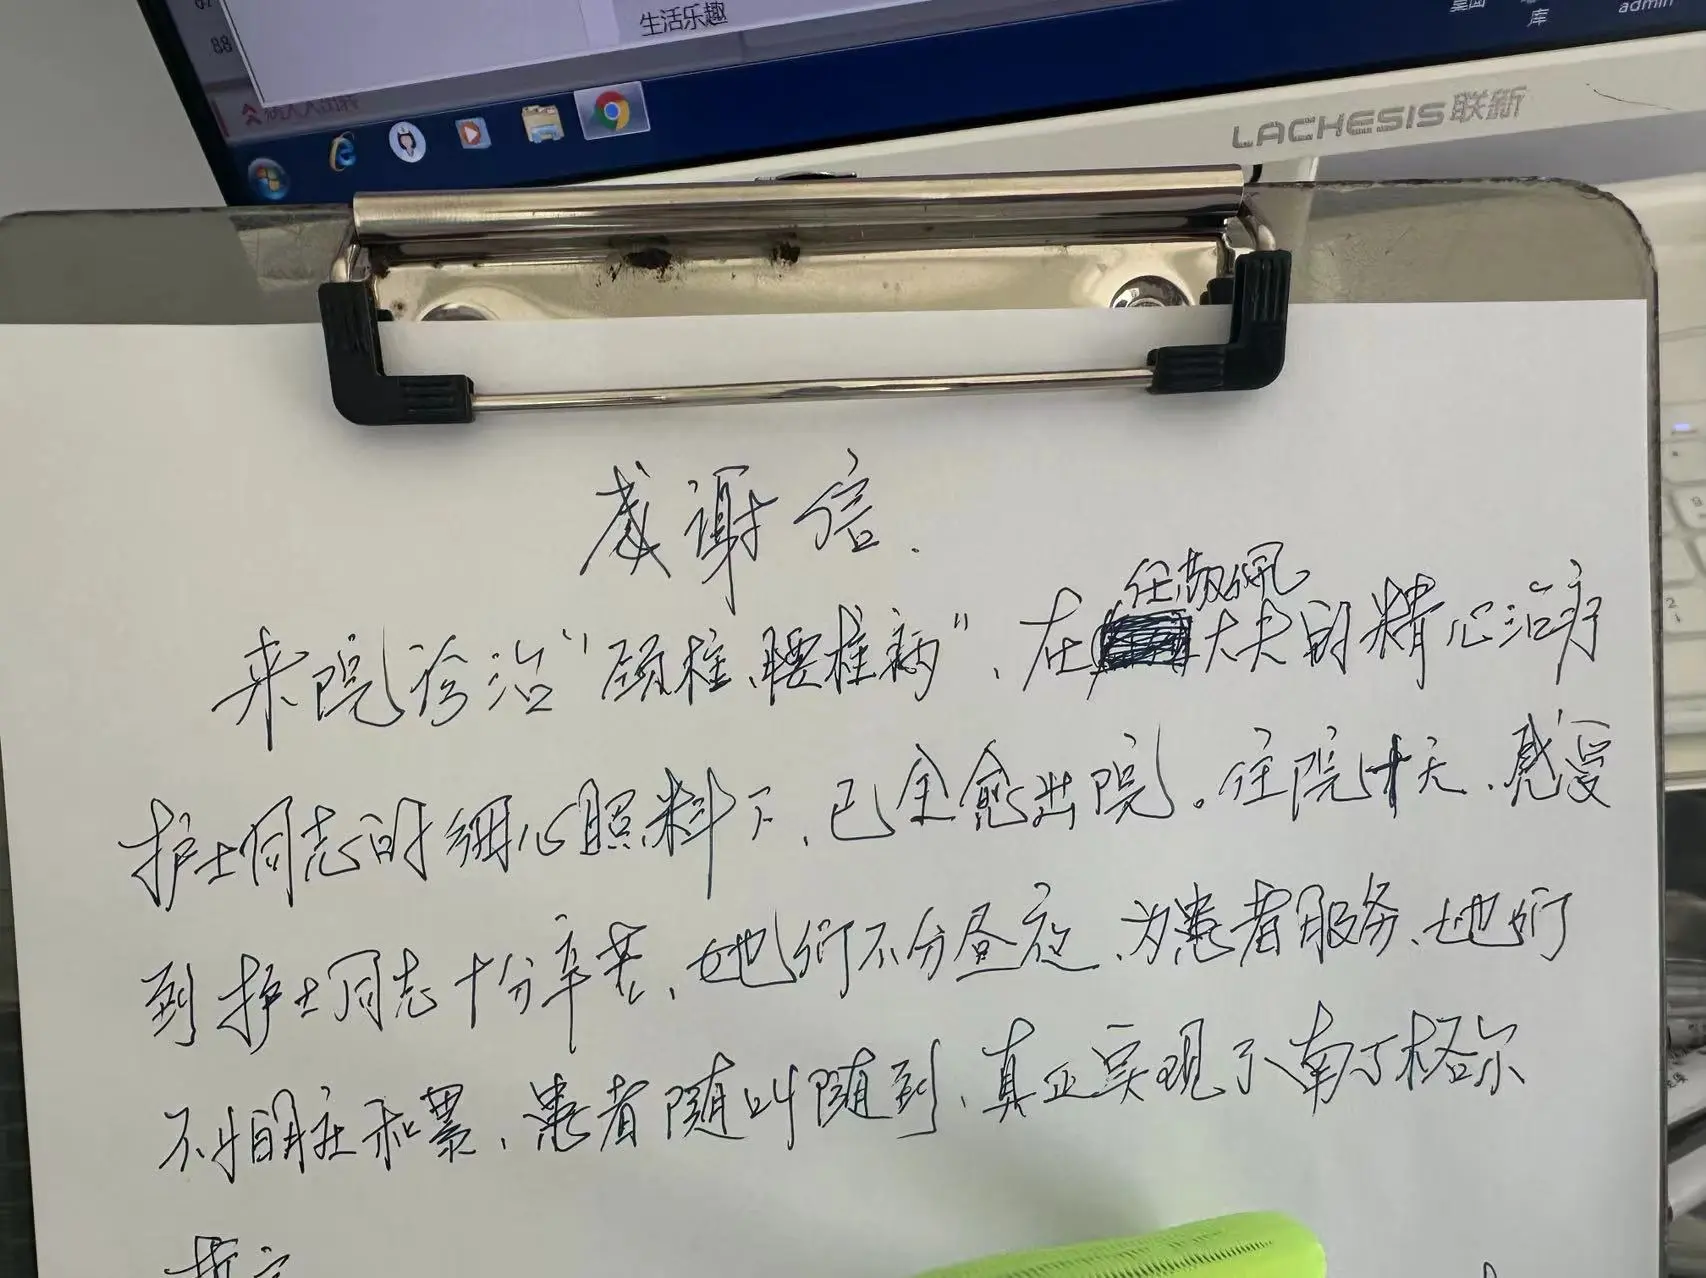 生活乐趣
库
admin
88
LACHESIS联新
感谢信.
任敬佩
来院诊治“颈椎、腰椎病”、在大夫的精心治疗
护士同志的细心照料下、已全愈出院。住院十天、感受
到护士同志十分辛苦、她们不分昼夜、为患者服务、她们
不怕脏和累、患者随叫随到、真正实现了南丁格尔